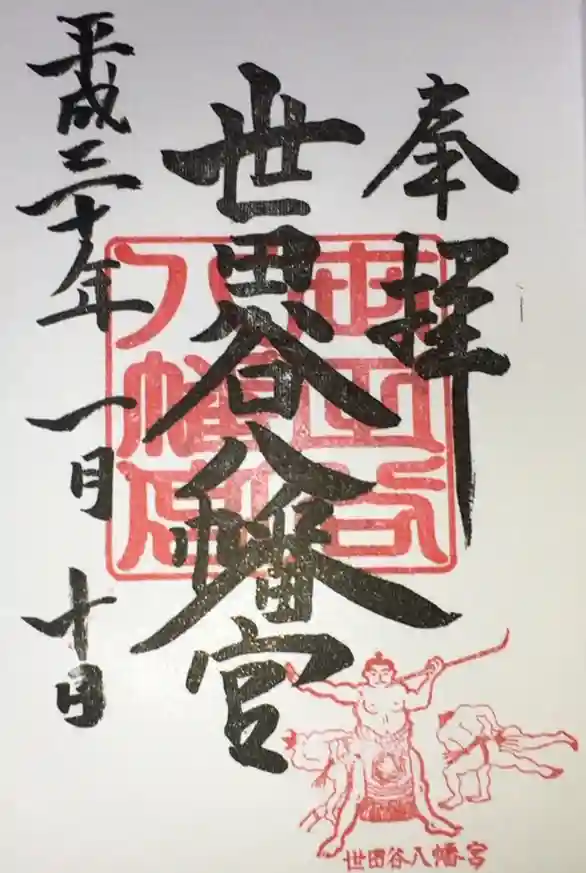 奉拝
世田谷八幡宮
平成三十年一月十日
世田谷
八幡宮
世田谷八幡宮